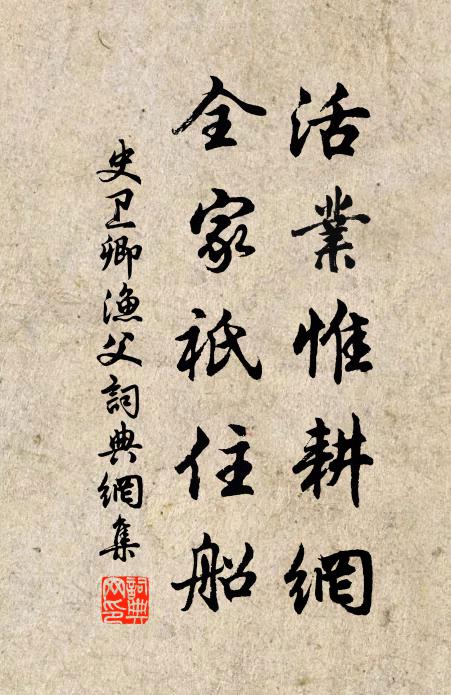 活業惟耕網
全家祇住船
史卫卿漁父詞典網集
詞典網印